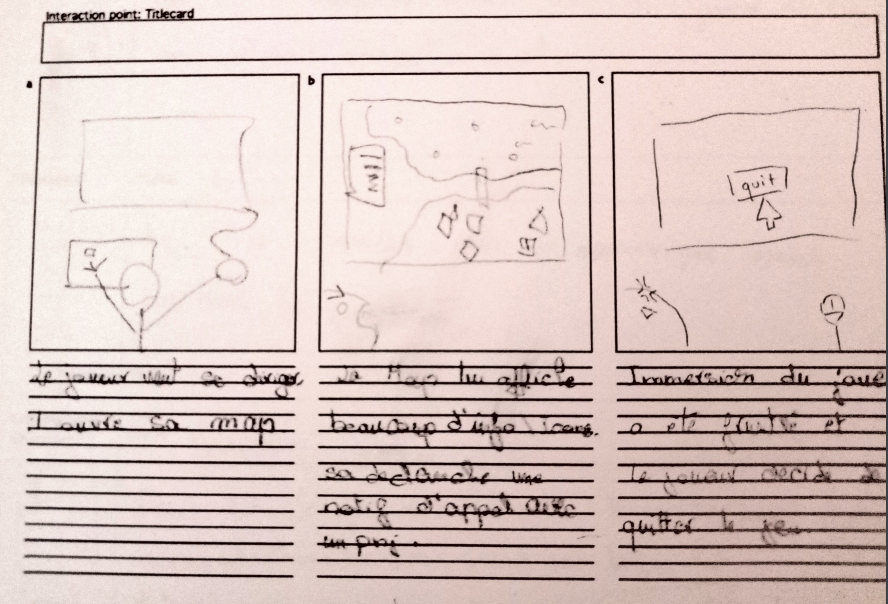 Interaction point: Titlecard
a
b
c
quit
Le joueur veut se diriger,
I ouvre sa map
La Map lui affiche
beaucoup d'info \ icons.
sa declanche une
notif d'appel avec
un pnj.
Immersion du joue
a été frustré et
le joueur decide de
quitter le jeu